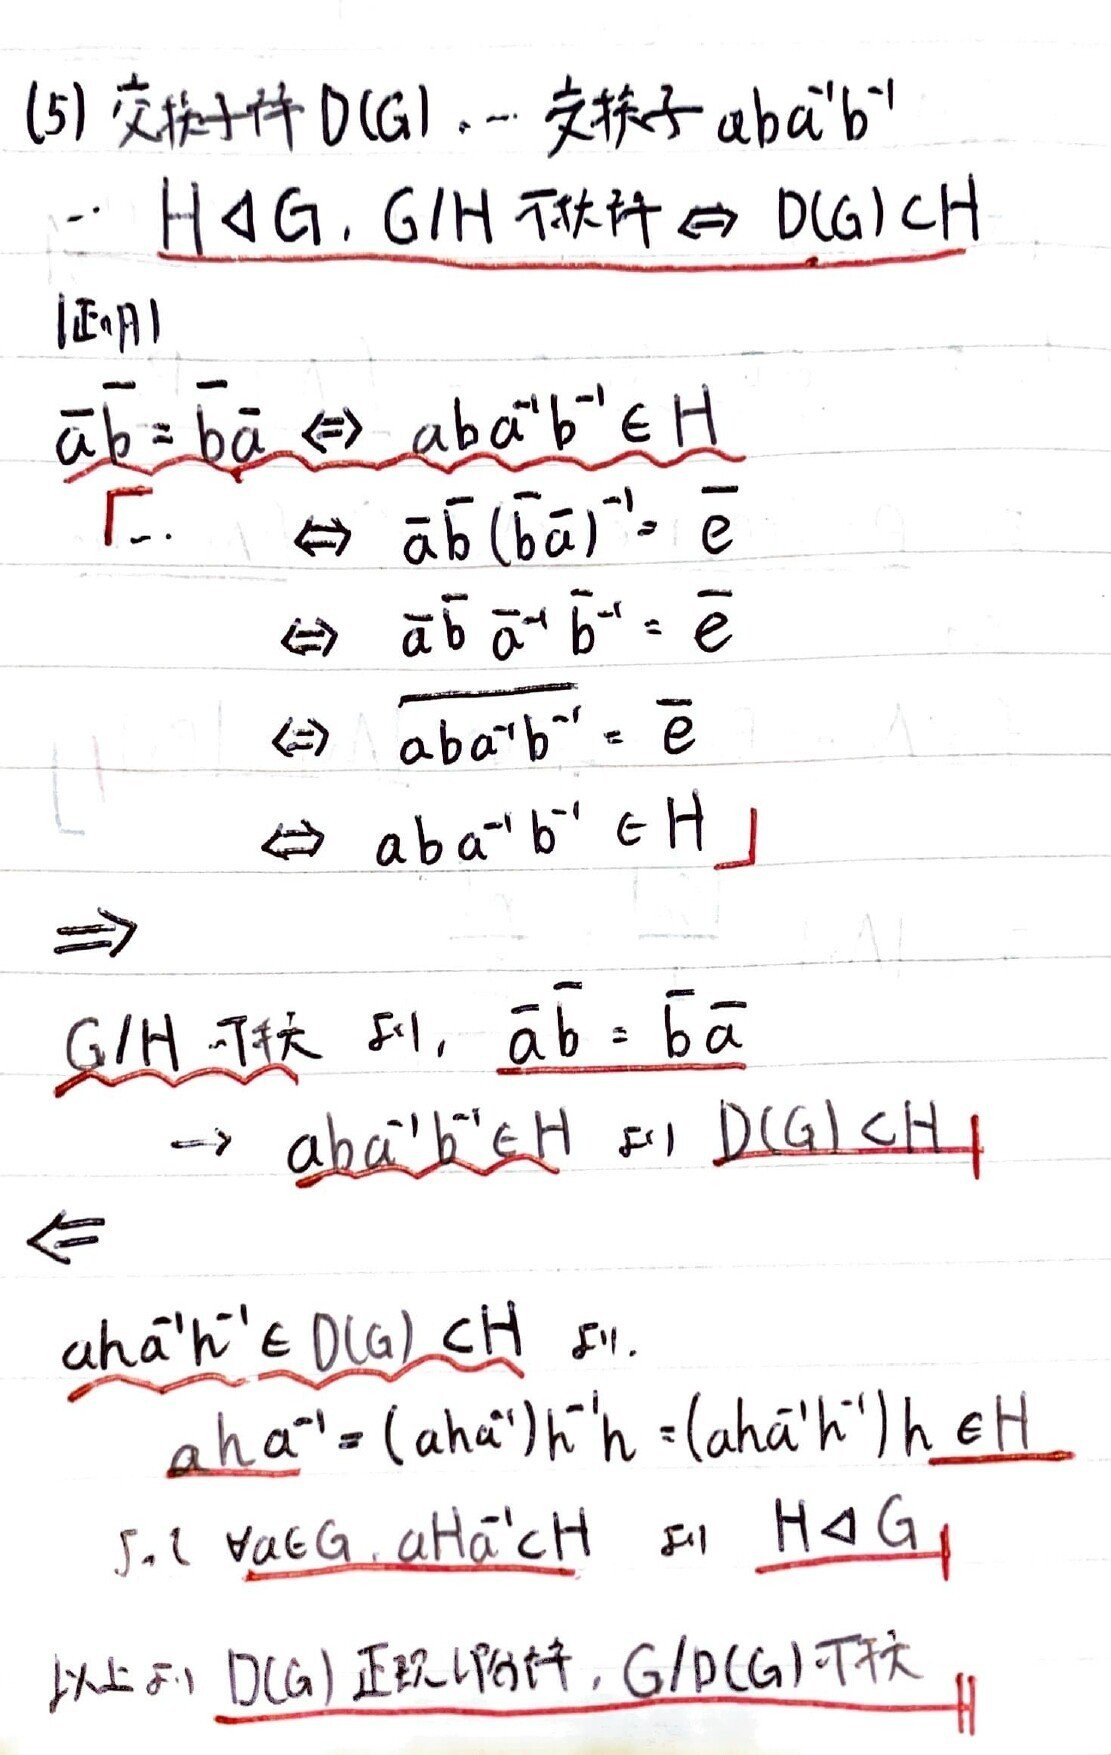 (5) 交換子群 D(G) … 交換子 aba⁻¹b⁻¹
… H◁G, G/H 可換群 ⇔ D(G)⊂H
証明
a̅b̅ = b̅a̅ ⇔ aba⁻¹b⁻¹ ∈ H
「… ⇔ a̅b̅(b̅a̅)⁻¹ = e̅
⇔ a̅b̅ a̅⁻¹ b̅⁻¹ = e̅
⇔ a̅b̅a̅⁻̅¹̅b̅⁻̅¹̅ = e̅
⇔ aba⁻¹b⁻¹ ∈ H」
⇒
G/H 可換 より, a̅b̅ = b̅a̅
→ aba⁻¹b⁻¹∈H より D(G)⊂H
⇐
aha⁻¹h⁻¹∈D(G)⊂H より.
aha⁻¹=(aha⁻¹)h⁻¹h=(aha⁻¹h⁻¹)h ∈H
よって ∀a∈G, aHa⁻¹⊂H より H◁G
以上より D(G) 正規部分群, G/D(G) 可換